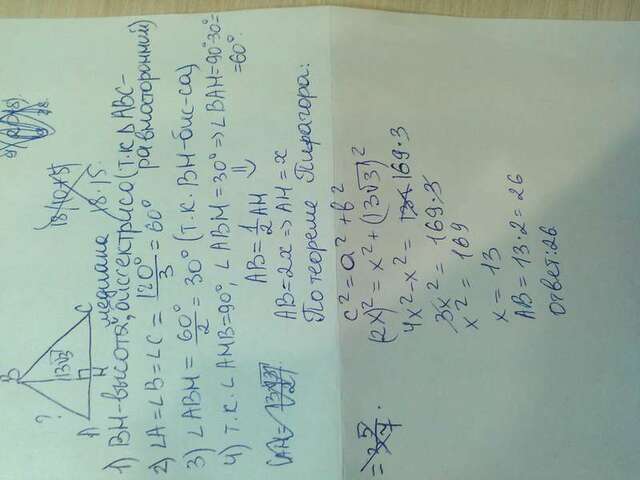 B
?
13√3
A H C
медиана
1) BH-высота, биссектриса (т.к ΔABC-
равносторонний)
2) ∠A=∠B=∠C = 180°/3 = 60°
3) ∠ABH = 60°/2 = 30° (т.к. BH-бис-са)
4) т.к. ∠AHB=90°, ∠ABH = 30° => ∠BAH=90°30°=
=60°.
AB=1/2AH
AB=2x => AH=x
По теореме Пифагора:
c²=a²+b²
(2x)²=x²+(13√3)²
4x²-x²= 169·3
3x²=169·3
x²=169
x=13
AB=13·2=26
Ответ:26